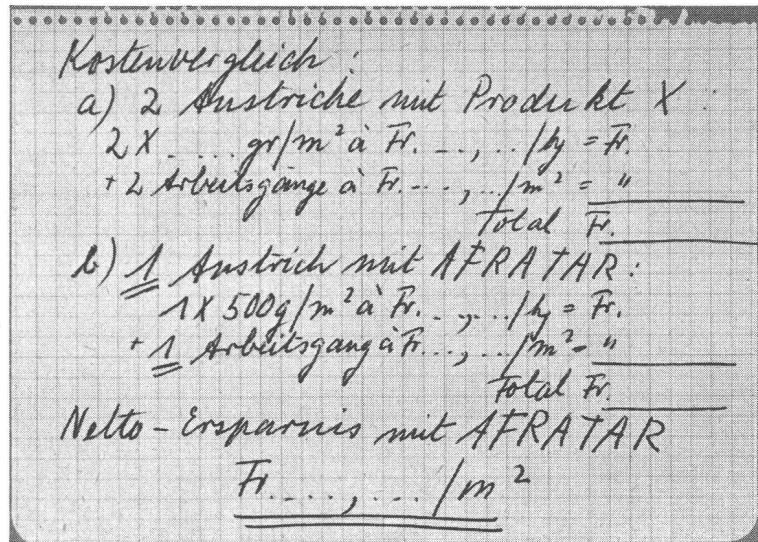 Kostenvergleich:
a) 2 Anstriche mit Produkt X
2 X ..... gr/m² à Fr. ..,../kg = Fr.
+ 2 Arbeitsgänge à Fr. ...,../m² = "
Total Fr.
b) 1 Anstrich mit AFRATAR:
1 X 500g/m² à Fr. ..,../kg = Fr.
+ 1 Arbeitsgang à Fr. ..,../m² = "
Total Fr.
Netto-Ersparnis mit AFRATAR
Fr. ...,.../m²